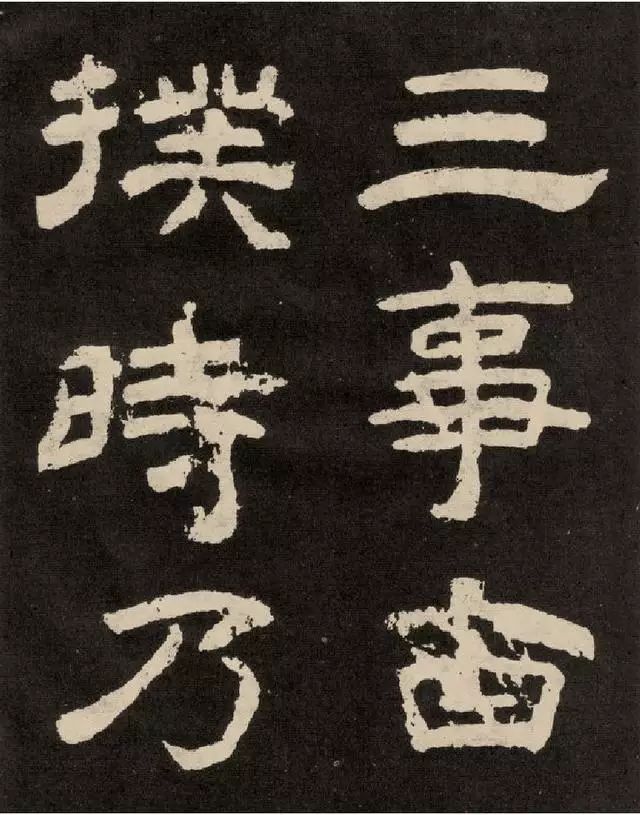 三事
撲時乃